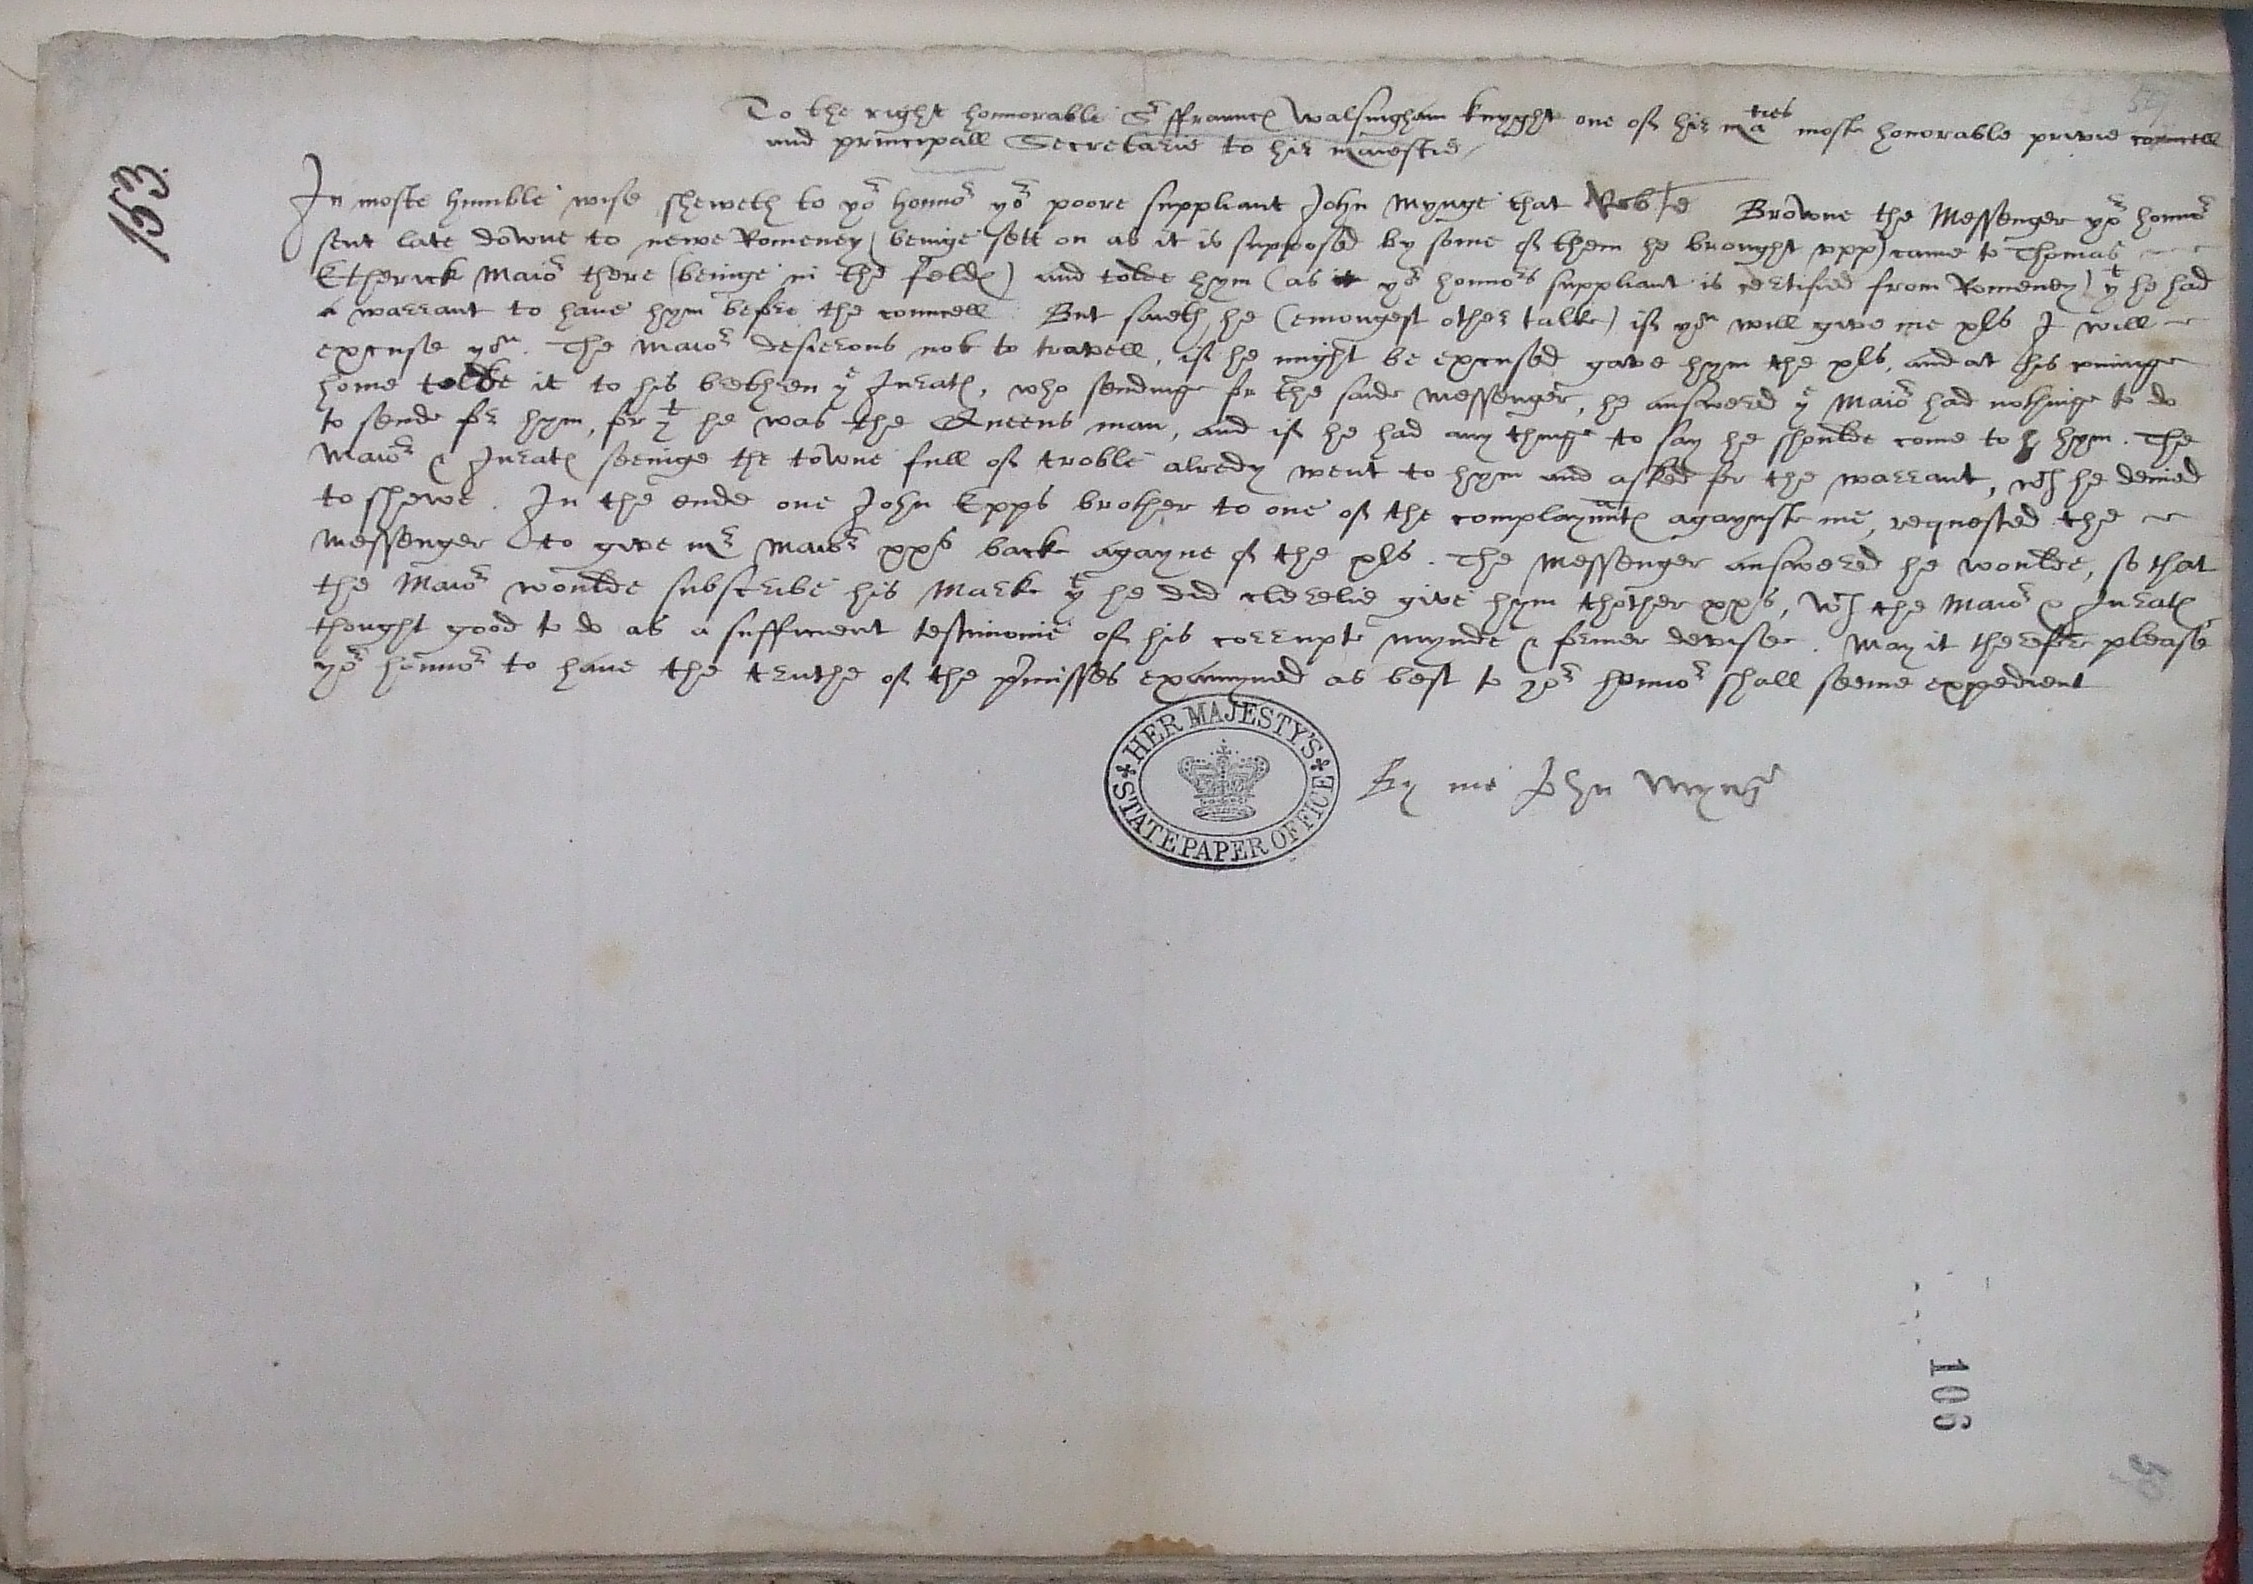 To the right honnorable Sr ffrauncs Walsingham knyght one of hir maties moste honorable privie councell
and principall Secretarie to hir maiestie /
153.
In moste humble wise sheweth to yor honnor yor poore suppliant John Mynge that Browne the Messenger yor honnor
sent late downe to newe Romeney (beinge sett on as it is supposed by some of them he brought upp) came to Thomas
Etherick Maior there (beinge in the felds) and tolde hym (as yor honnors suppliant is certified from Romeney) yt he had
a warrant to have hym before the councell. But saieth he (emongest other talke) if you will give me xls I will
excuse you. The Maior desierous not to travell, if he might be excused gave hym the xls, and at his cominge
home tolde it to his brethren ye Jurats, who sendinge for the saide Messenger, he answered ye Maior had nothinge to do
to sende for hym, for yt he was the Queens man, and if he had any thinge to say he shoulde come to hym. The
Maior & Jurats seeinge the towne full of troble alredy went to hym and asked for the warrant, wch he denied
to shewe. In the ende one John Epps brother to one of the complaynants agaynste me, requested the
Messenger to give mr Maior xxs back agayne of the xls. The Messenger answered he woulde, so that
the Maior woulde subscribe his Marke yt he did clerelie give hym thother xxs, wch the Maior & Jurats
thought good to do as a sufficient testimonie of his corrupte mynde & former devise. May it therefore please
yor honnor to have the truthe of the pmisses examyned as best to yor honnor shall seeme expedient
By me John Mynge
HER MAJESTY'S
STATE PAPER OFFICE
106